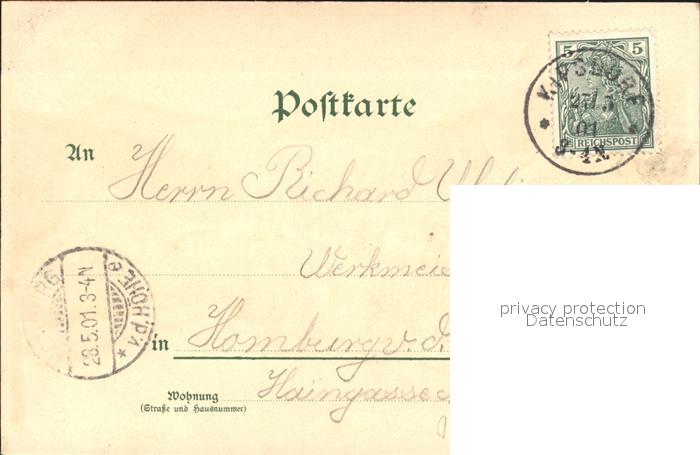 Postkarte
5 5
KIPSDORF
27/5
01
3-4N
REICHSPOST
An Herrn Richard
Werkmei
in Homburg v. d.
Haingasse
Wohnung
(Straße und Hausnummer)
28.5.01.3-4N
V.D.HÖHE
privacy protection
Datenschutz